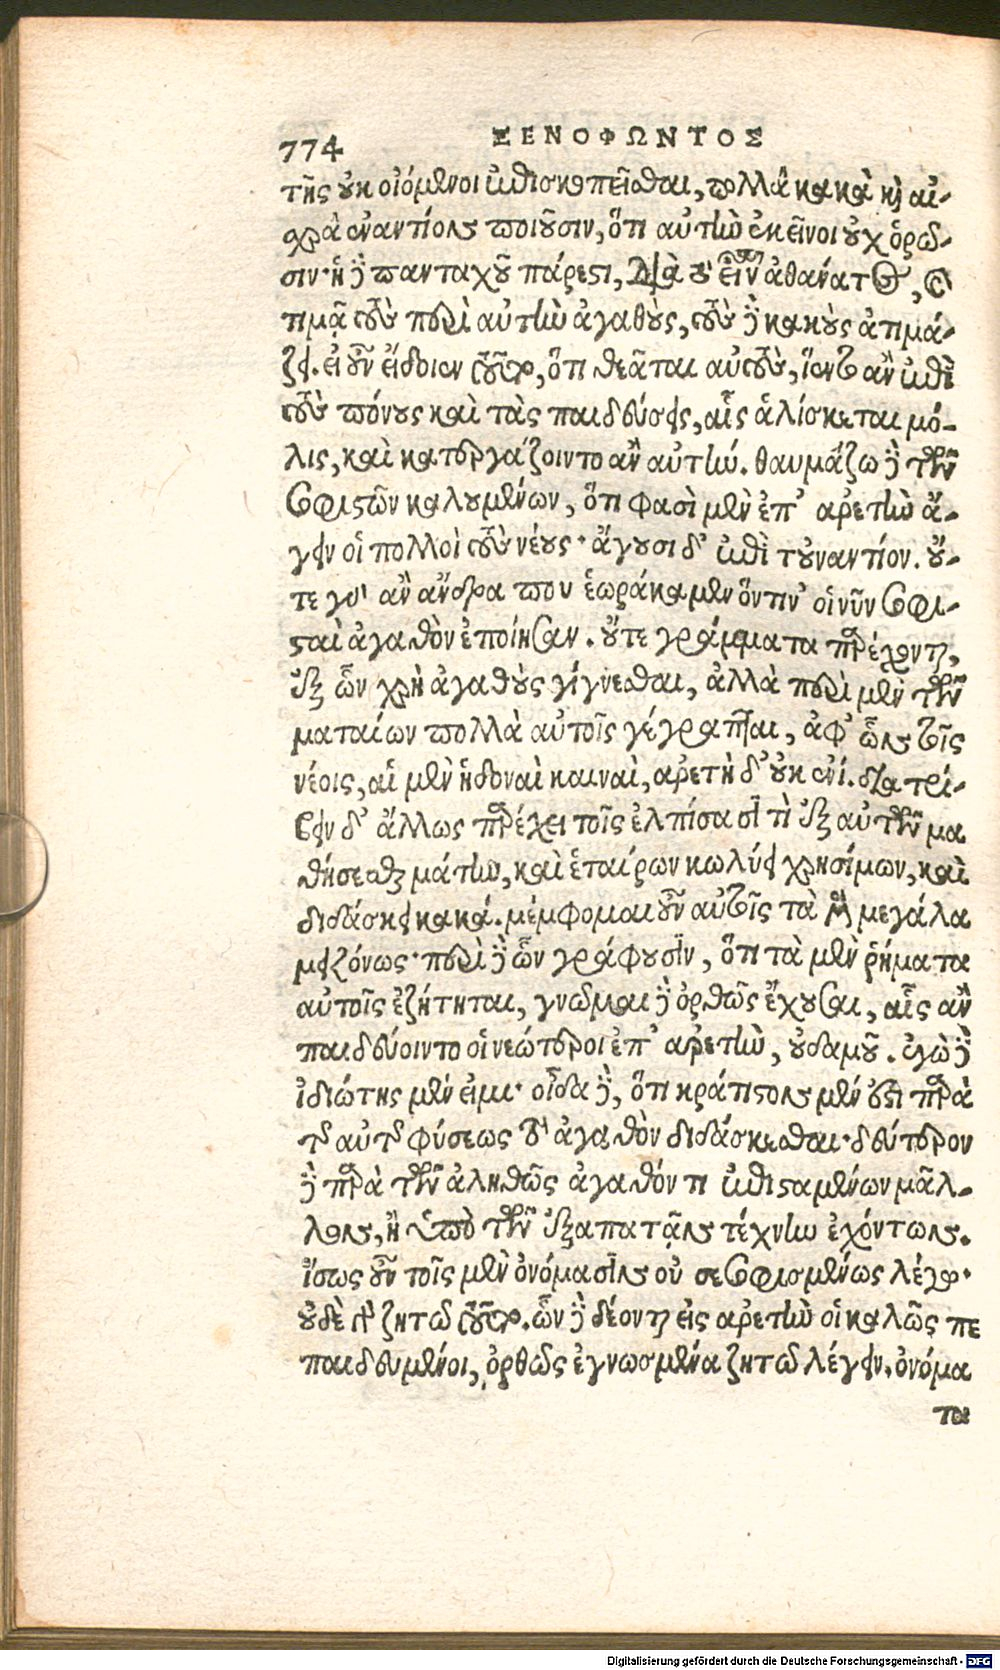 774 ΞΕΝΟΦΩΝΤΟΣ
της ουκ οιόμενοι επισκοπεῖσθαι, πολλὰ κακὰ καὶ αἰ-
σχρὰ ἐναντίον ποιοῦσιν, ὅτι αὐτὴν ἐκεῖνοι οὐχ ὁρῶ-
σιν· ἡ δὲ πανταχοῦ πάρεστι, διὰ τὸ εἶναι ἀθάνατος, καὶ
τιμᾷ τοὺς περὶ αὐτὴν ἀγαθοὺς, τοὺς δὲ κακοὺς ἀτιμά-
ζει. εἰ οὖν εἴδοιεν τοῦτο, ὅτι θεᾶται αὐτοὺς, ἵεντο ἂν ἐπὶ
τοὺς πόνους καὶ τὰς παιδεύσεις, αἷς ἁλίσκεται μό-
λις, καὶ κατεργάζοιντο ἂν αὐτήν. θαυμάζω δὲ τῶν
σοφιστῶν καλουμένων, ὅτι φασὶ μὲν ἐπ' ἀρετὴν ἄ-
γειν οἱ πολλοὶ τοὺς νέους· ἄγουσι δ' ἐπὶ τοὐναντίον. οὔ-
τε γὰρ ἂν ἄνδρα που ἑωράκαμεν ὅντιν' οἱ νῦν σοφι-
σταὶ ἀγαθὸν ἐποίησαν. οὔτε γράμματα παρέχονται,
ἐξ ὧν χρὴ ἀγαθοὺς γίγνεσθαι, ἀλλὰ περὶ μὲν τῶν
ματαίων πολλὰ αὐτοῖς γέγραπται, ἀφ' ὧν τοῖς
νέοις, αἱ μὲν ἡδοναὶ καιναὶ, ἀρετὴ δ' οὐκ ἔνι. διατρί-
βειν δ' ἄλλως παρέχει τοῖς ἐλπίσασί τι ἐξ αὐτῶν μα
θήσεσθαι μάτην, καὶ ἑταίρων κωλύει χρησίμων, καὶ
διδάσκει κακά. μέμφομαι οὖν αὐτοῖς τὰ μὲν μεγάλα
μειζόνως· περὶ δὲ ὧν γράφουσιν, ὅτι τὰ μὲν ῥήματα
αὐτοῖς ἐζήτηται, γνῶμαι δὲ ὀρθῶς ἔχουσαι, αἷς ἂν
παιδεύοιντο οἱ νεώτεροι ἐπ' ἀρετὴν, οὐδαμοῦ. ἐγὼ δὲ
ἰδιώτης μέν εἰμι· οἶδα δὲ, ὅτι κράτιστον μέν ἐστι παρὰ
τῆς αὐτῆς φύσεως τὸ ἀγαθὸν διδάσκεσθαι· δεύτερον
δὲ παρὰ τῶν ἀληθῶς ἀγαθόν τι ἐπισταμένων μᾶλ-
λον, ἢ ὑπὸ τῶν ἐξαπατᾷν τέχνην ἐχόντων.
ἴσως οὖν τοῖς μὲν ὀνόμασιν οὐ σεσοφισμένως λέγω·
οὐδὲ γὰρ ζητῶ τοῦτο. ὧν δὲ δέονται εἰς ἀρετὴν οἱ καλῶς πε
παιδευμένοι, ὀρθῶς ἐγνωσμένα ζητῶ λέγειν. ὀνόμα
τα
Digitalisierung gefördert durch die Deutsche Forschungsgemeinschaft - DFG